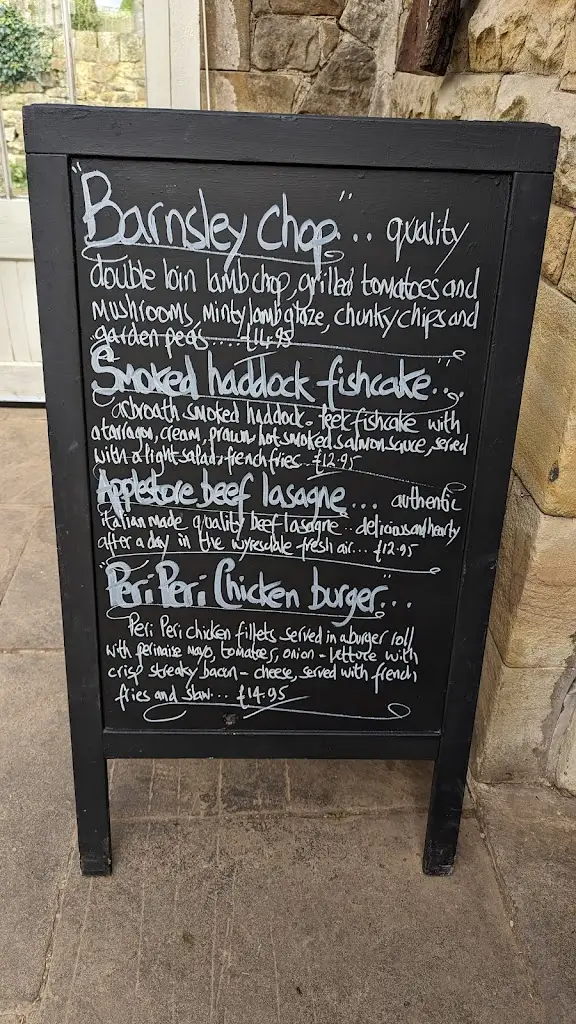 "Barnsley Chop".. quality
double loin lamb chop, grilled tomatoes and
mushrooms, minty lamb glaze, chunky chips and
garden peas.... £14.95
Smoked haddock fishcake"..
arbroath smoked haddock - leek fishcake with
a tarragon, cream, prawn, hot smoked salmon sauce, served
with a light salad, french fries... £12.95
Applestore beef lasagne... authentic
italian made quality beef lasagne.. delicious and hearty
after a day in the wyresdale fresh air... £12.95
"Peri Peri Chicken burger"...
Peri Peri chicken fillets served in a burger roll
with perinaise mayo, tomatoes, onion - lettuce with
crisp streaky bacon - cheese, served with french
fries and slaw... £14.95